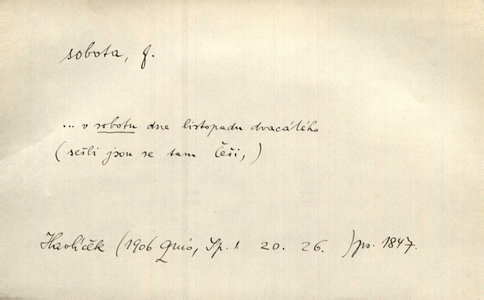 sobota, f.
... v sobotu dne listopadu dvacátého
(sešli jsou se tam Češi,)
Havlíček (1906 Quis, Sp. 1 20. 26. ) ps. 1847.